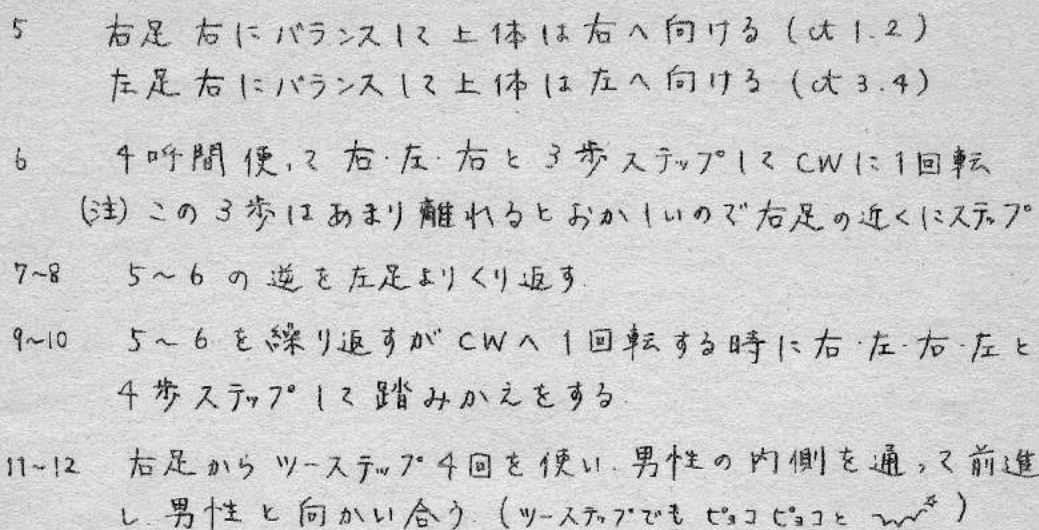 5 右足 右にバランスして上体は右へ向ける (ct 1.2)
左足 右にバランスして上体は左へ向ける (ct 3.4)
6 4呼間使って右・左・右と3歩ステップして CWに1回転
(注) この3歩はあまり離れるとおかしいので右足の近くにステップ
7~8 5~6の逆を左足よりくり返す
9~10 5~6を繰り返すが CWへ1回転する時に右・左・右・左と
4歩ステップして踏みかえをする
11~12 右足からツーステップ4回を使い、男性の内側を通って前進
し、男性と向かい合う. (ツーステップでもピョコピョコと )